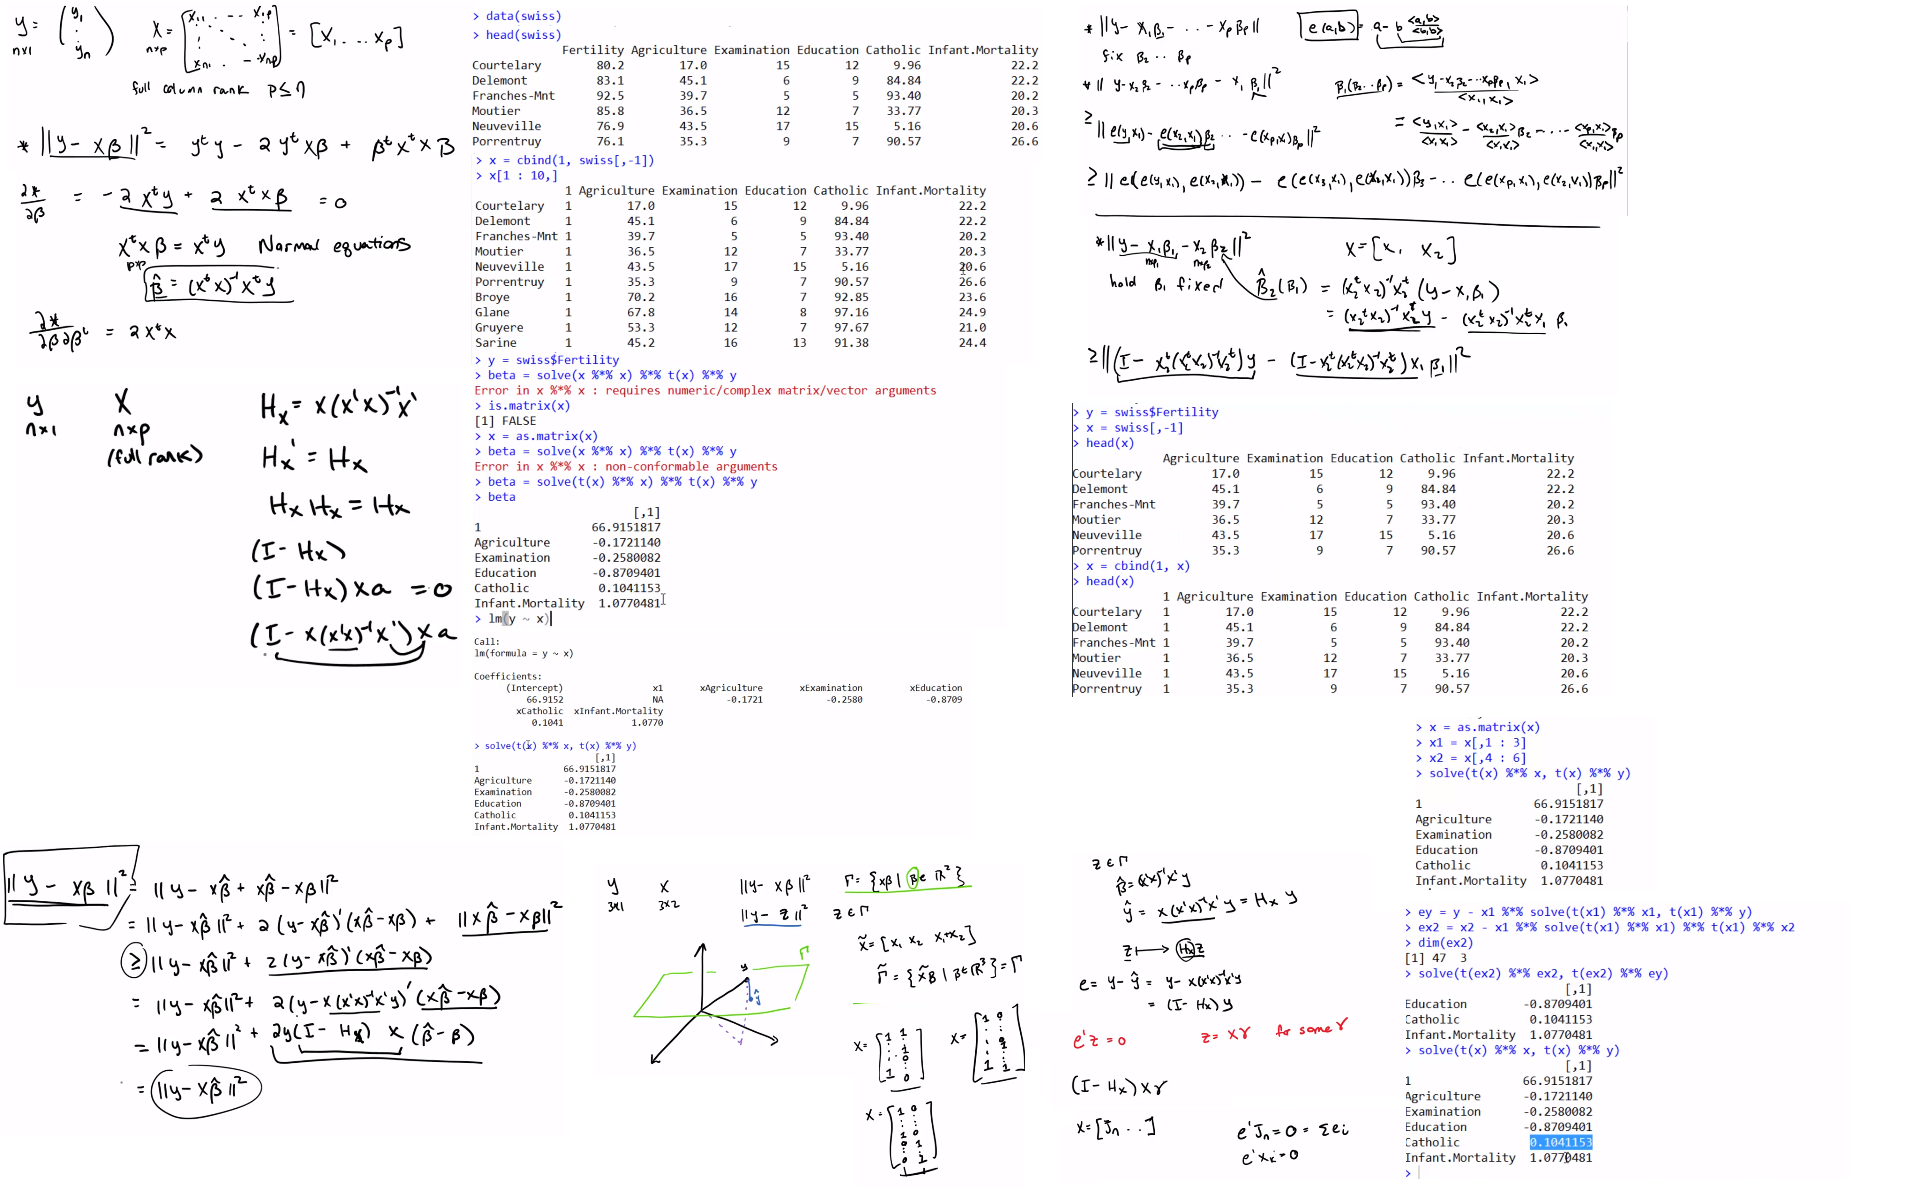 y = (y₁ ⋮ yₙ) X = [x₁₁ . -- x₁ₚ xₙ₁ . . -xₙₚ] = [x₁ ... xₚ]
n×1 n×p
full column rank p ≤ n
* ||y - xβ||² = yᵗy - 2yᵗxβ + βᵗxᵗxβ
∂*/∂β = -2xᵗy + 2xᵗxβ = 0
xᵗxβ = xᵗy Normal equations
p×p
β̂ = (xᵗx)⁻¹xᵗy
∂*/∂β∂βᵗ = 2xᵗx
y X Hₓ = x(x'x)⁻¹x'
n×1 n×p
(full rank) Hₓ' = Hₓ
Hₓ Hₓ = Hₓ
(I - Hₓ)
(I - Hₓ) x a = 0
(I - x(x'x)⁻¹x') x a
> data(swiss)
> head(swiss)
Fertility Agriculture Examination Education Catholic Infant.Mortality
Courtelary 80.2 17.0 15 12 9.96 22.2
Delemont 83.1 45.1 6 9 84.84 22.2
Franches-Mnt 92.5 39.7 5 5 93.40 20.2
Moutier 85.8 36.5 12 7 33.77 20.3
Neuveville 76.9 43.5 17 15 5.16 20.6
Porrentruy 76.1 35.3 9 7 90.57 26.6
> x = cbind(1, swiss[,-1])
> x[1 : 10,]
1 Agriculture Examination Education Catholic Infant.Mortality
Courtelary 1 17.0 15 12 9.96 22.2
Delemont 1 45.1 6 9 84.84 22.2
Franches-Mnt 1 39.7 5 5 93.40 20.2
Moutier 1 36.5 12 7 33.77 20.3
Neuveville 1 43.5 17 15 5.16 20.6
Porrentruy 1 35.3 9 7 90.57 26.6
Broye 1 70.2 16 7 92.85 23.6
Glane 1 67.8 14 8 97.16 24.9
Gruyere 1 53.3 12 7 97.67 21.0
Sarine 1 45.2 16 13 91.38 24.4
> y = swiss$Fertility
> beta = solve(x %*% x) %*% t(x) %*% y
Error in x %*% x : requires numeric/complex matrix/vector arguments
> is.matrix(x)
[1] FALSE
> x = as.matrix(x)
> beta = solve(x %*% x) %*% t(x) %*% y
Error in x %*% x : non-conformable arguments
> beta = solve(t(x) %*% x) %*% t(x) %*% y
> beta
[,1]
1 66.9151817
Agriculture -0.1721140
Examination -0.2580082
Education -0.8709401
Catholic 0.1041153
Infant.Mortality 1.0770481
> lm(y ~ x)
Call:
lm(formula = y ~ x)
Coefficients:
(Intercept) x1 xAgriculture xExamination xEducation
66.9152 NA -0.1721 -0.2580 -0.8709
xCatholic xInfant.Mortality
0.1041 1.0770
> solve(t(x) %*% x, t(x) %*% y)
[,1]
1 66.9151817
Agriculture -0.1721140
Examination -0.2580082
Education -0.8709401
Catholic 0.1041153
Infant.Mortality 1.0770481
* ||y - x₁β₁ - ... - xₚβₚ|| e(a,b) = a - b <a,b>/<b,b>
fix β₂ .. βₚ
* || y - x₂β₂ - ... xₚβₚ - x₁β₁||² β₁(β₂..βₚ) = <y - x₂β₂ -... xₚβₚ, x₁>/<x₁,x₁>
≥ || e(y,x₁) - e(x₂,x₁)β₂ ... - e(xₚ,x₁)βₚ||² = <y,x₁>/<x₁,x₁> - <x₂,x₁>/<x₁,x₁> β₂ - ... - <xₚ,x₁>/<x₁,x₁> βₚ
≥ || e(e(y,x₁), e(x₂,x₁)) - e(e(x₃,x₁), e(x₂,x₁))β₃ - ... e(e(xₚ,x₁), e(x₂,x₁))βₚ||²
* ||y - x₁β₁ - x₂β₂||² X = [x₁ x₂]
n×p₁ n×p₂
hold β₁ fixed β̂₂(β₁) = (x₂ᵗx₂)⁻¹x₂ᵗ(y - x₁β₁)
= (x₂ᵗx₂)⁻¹x₂ᵗy - (x₂ᵗx₂)⁻¹x₂ᵗx₁ β₁
≥ ||(I - x₂ᵗ(x₂ᵗx₂)⁻¹x₂ᵗ)y - (I - x₂ᵗ(x₂ᵗx₂)⁻¹x₂ᵗ)x₁β₁||²
> y = swiss$Fertility
> x = swiss[,-1]
> head(x)
Agriculture Examination Education Catholic Infant.Mortality
Courtelary 17.0 15 12 9.96 22.2
Delemont 45.1 6 9 84.84 22.2
Franches-Mnt 39.7 5 5 93.40 20.2
Moutier 36.5 12 7 33.77 20.3
Neuveville 43.5 17 15 5.16 20.6
Porrentruy 35.3 9 7 90.57 26.6
> x = cbind(1, x)
> head(x)
1 Agriculture Examination Education Catholic Infant.Mortality
Courtelary 1 17.0 15 12 9.96 22.2
Delemont 1 45.1 6 9 84.84 22.2
Franches-Mnt 1 39.7 5 5 93.40 20.2
Moutier 1 36.5 12 7 33.77 20.3
Neuveville 1 43.5 17 15 5.16 20.6
Porrentruy 1 35.3 9 7 90.57 26.6
> x = as.matrix(x)
> x1 = x[,1 : 3]
> x2 = x[,4 : 6]
> solve(t(x) %*% x, t(x) %*% y)
[,1]
1 66.9151817
Agriculture -0.1721140
Examination -0.2580082
Education -0.8709401
Catholic 0.1041153
Infant.Mortality 1.0770481
> ey = y - x1 %*% solve(t(x1) %*% x1, t(x1) %*% y)
> ex2 = x2 - x1 %*% solve(t(x1) %*% x1) %*% t(x1) %*% x2
> dim(ex2)
[1] 47 3
> solve(t(ex2) %*% ex2, t(ex2) %*% ey)
[,1]
Education -0.8709401
Catholic 0.1041153
Infant.Mortality 1.0770481
> solve(t(x) %*% x, t(x) %*% y)
[,1]
1 66.9151817
Agriculture -0.1721140
Examination -0.2580082
Education -0.8709401
Catholic 0.1041153
Infant.Mortality 1.0770481
>
||y - xβ||² = ||y - xβ̂ + xβ̂ - xβ||²
= ||y - xβ̂||² + 2(y - xβ̂)'(xβ̂ - xβ) + ||xβ̂ - xβ||²
≥ ||y - xβ̂||² + 2(y - xβ̂)'(xβ̂ - xβ)
= ||y - xβ̂||² + 2(y - x(x'x)⁻¹x'y)'(xβ̂ - xβ)
= ||y - xβ̂||² + 2y(I - Hₓ) x (β̂ - β)
= ||y - xβ̂||²
y X ||y - xβ||² Γ = {xβ | β ∈ ℝ²}
3×1 3×2 ||y - z||² z ∈ Γ
x̃ = [x₁ x₂ x₁+x₂]
Γ̃ = {x̃β | β ∈ ℝ³} = Γ
y ŷ Γ
X = [1 1 ⋮ 1 0 ⋮ 1 0] X = [1 0 ⋮ 0 1 ⋮ 1 1]
X = [1 0 ⋮ 1 0 0 1 ⋮ 0 1]
z ∈ Γ
β̂ = (x'x)⁻¹x'y
ŷ = x(x'x)⁻¹x'y = Hₓ y
z ⟼ Hₓz
e = y - ŷ = y - x(x'x)⁻¹x'y
= (I - Hₓ)y
e'z = 0 z = xγ for some γ
(I - Hₓ)xγ
X = [Jₙ ...] e'Jₙ = 0 = Σeᵢ
e'xᵢ = 0